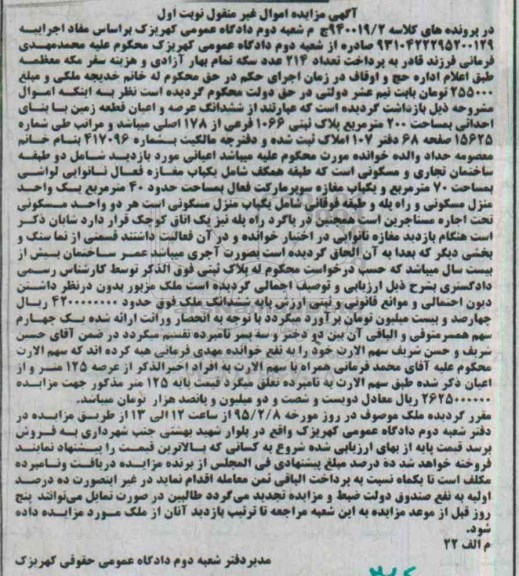 آگهی مزایده اموال غیر منقول نوبت اول
در پرونده های کلاسه ۹۴۰۰۱۹/۲ج م شعبه دوم دادگاه عمومی کهریزک براساس مفاد اجراییه
۹۳۱۰۴۲۲۲۹۵۲۰۰۱۲۹ صادره از شعبه دوم دادگاه عمومی کهریزک محکوم علیه محمدمهدی
فرمانی فرزند قادر به پرداخت تعداد ۲۱۴ عدد سکه تمام بهار آزادی و هزینه سفر مکه معظمه
طبق اعلام اداره حج و اوقاف در زمان اجرای حکم در حق محکوم له خانم خدیجه ملکی و مبلغ
۲۵۵۰۰۰ تومان بابت نیم عشر دولتی در حق دولت محکوم گردیده است نظر به اینکه اموال
مشروحه ذیل بازداشت گردیده است که عبارتند از ششدانگ عرصه و اعیان قطعه زمین با بنای
احداثی بمساحت ۲۰۰ مترمربع پلاک ثبتی ۱۰۶۶ فرعی از ۱۷۸ اصلی میباشد و مراتب طی شماره
۱۵۶۲۵ صفحه ۶۸ دفتر ۱۰۷ املاک ثبت شده و دفترچه مالکیت بشماره ۴۱۷۰۹۶ بنام خانم
معصومه حداد والده خوانده مورت محکوم علیه میباشد اعیانی مورد بازدید شامل دو طبقه
ساختمان تجاری و مسکونی است که طبقه همکف شامل یکباب مغازه فعال نانوایی لواشی
بمساحت ۷۰ مترمربع و یکباب مغازه سوپرمارکت فعال بمساحت حدود ۴۰ مترمربع یک واحد
منزل مسکونی و راه پله و طبقه فوقانی شامل یکباب منزل مسکونی است هر دو واحد مسکونی
تحت اجاره مستاجرین است همچنین در پاگرد راه پله نیز یک اتاق کوچک قرار دارد شایان ذکر
است هنگام بازدید مغازه نانوایی در اختیار خوانده و در آن فعالیت داشتند قسمتی از نما سنگ و
بخشی دیگر که بعدا به آن الحاق گردیده است بصورت آجری میباشد عمر ساختمان بیش از
بیست سال میباشد که حسب درخواست محکوم له پلاک ثبتی فوق الذکر توسط کارشناس رسمی
دادگستری بشرح ذیل ارزیابی و توصیف اجمالی گردیده است ملک مزبور بدون درنظر داشتن
دیون احتمالی و موانع قانونی و ثبتی ارزش پایه ششدانگ ملک فوق حدود ۴۲۰۰۰۰۰۰۰۰ ریال
چهارصد و بیست میلیون تومان برآورد میگردد با توجه به انحصار وراثت ارائه شده یک چهارم
سهم همسرمتوفی و الباقی آن بین دو دختر و سه پسر نامبرده تقسیم میگردد در ضمن آقای حسن
شریف و حسن شریف سهم الارث خود را به نفع خوانده مهدی فرمانی هبه کرده اند که سهم الارث
محکوم علیه آقای محمد فرمانی همراه با سهم الارث به افراد اخیرالذکر از عرصه ۱۲۵ متر و از
اعیان ذکر شده طبق سهم الارث به نامبرده تعلق میگرد قیمت پایه ۱۲۵ متر مذکور جهت مزایده
۲۶۲۵۰۰۰۰۰۰ ریال معادل دویست و شصت و دو میلیون و پانصد هزار تومان میباشد.
مقرر گردیده ملک موصوف در روز مورخه ۹۵/۲/۸ از ساعت ۱۲ الی ۱۳ از طریق مزایده در
دفتر شعبه دوم دادگاه عمومی کهریزک واقع در بلوار شهید بهشتی جنب شهرداری به فروش
برسد قیمت پایه از بهای ارزیابی شده شروع به کسانی که بالاترین قیمت را پیشنهاد نمایند
فروخته خواهد شد ده درصد مبلغ پیشنهادی فی المجلس از برنده مزایده دریافت ونامبرده
مکلف است تا یکماه نسبت به پرداخت الباقی ثمن معامله اقدام نماید در غیر اینصورت ده درصد
اولیه به نفع صندوق دولت ضبط و مزایده تجدید می گردد طالبین در صورت تمایل می‌توانند پنج
روز قبل از موعد مزایده به این شعبه مراجعه تا ترتیب بازدید آنان از ملک مورد مزایده داده
شود.
م الف ۲۲
مدیر دفتر شعبه دوم دادگاه عمومی حقوقی کهریزک